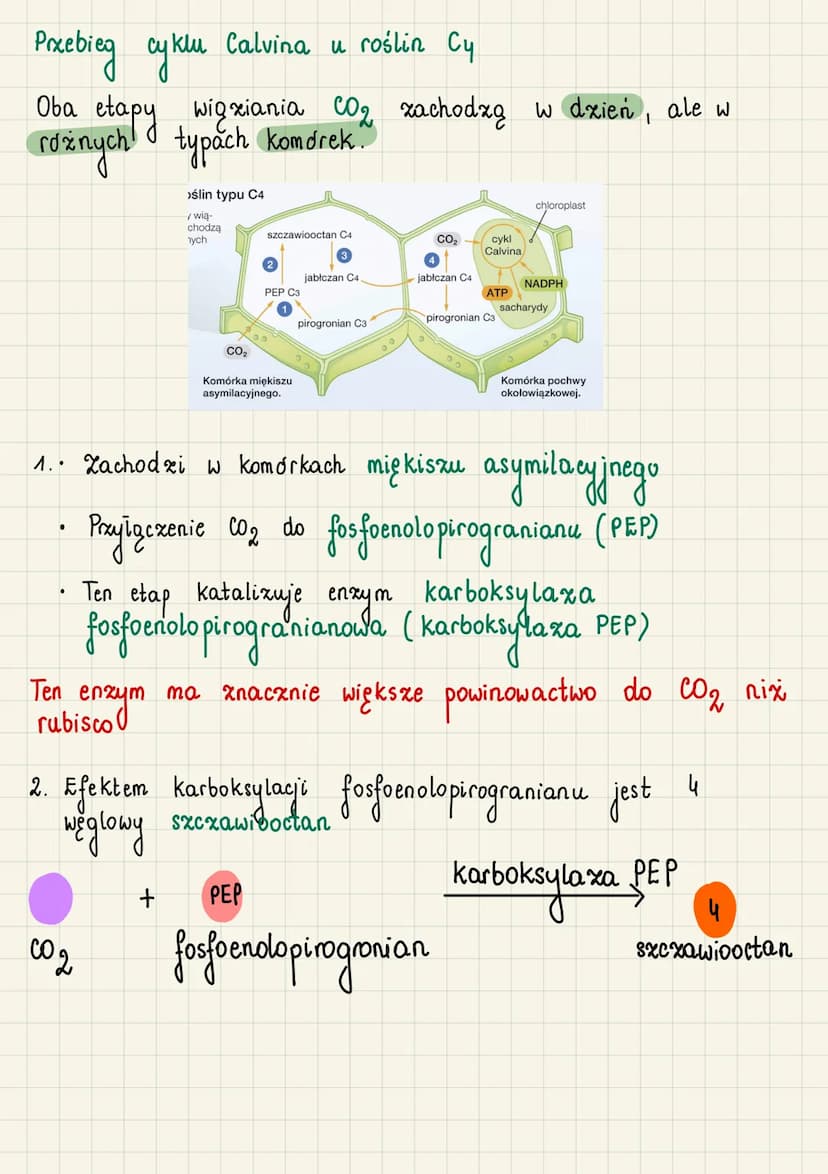 Przebieg cyklu Calvina u roślin C4
Oba etapy wiązania CO2 zachodzą w dzień, ale w
różnych typach komórek.
oślin typu C4
y wią-
chodzą
nych
szczawiooctan C4
2
3
jabłczan C4
PEP C3
1
pirogronian C3
CO2
Komórka miękiszu
asymilacyjnego.
chloroplast
CO2
cykl
Calvina
4
jabłczan C4
NADPH
ATP
sacharydy
pirogronian C3
Komórka pochwy
okołowiązkowej.
1. • Zachodzi w komórkach miękiszu asymilacyjnego
• Przyłączenie CO2 do fosfoenolopirogranianu (PEP)
• Ten etap katalizuje enzym karboksylaza
fosfoenolopirogranianowa (karboksylaza PEP)
Ten enzym ma znacznie większe powinowactwo do CO2 niż
rubisco
2. Efektem karboksylacji fosfoenolopirogranianu jest 4
węglowy szczawiooctan
karboksylaza PEP
+ PEP
4
CO2 fosfoenolopirogronian szczawiooctan